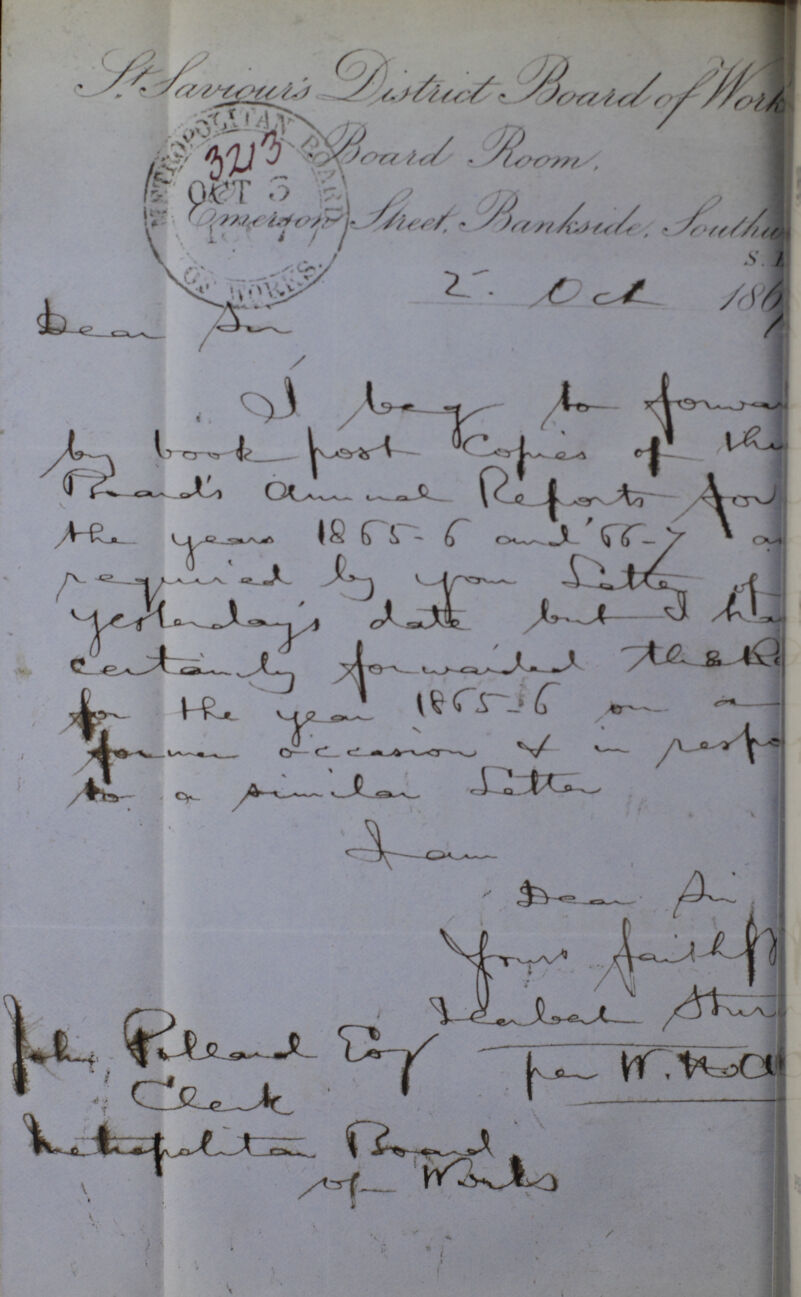 St. Saviour's District Board of Work
Board Room,
Emerson Street, Bankside, Southw
S.E
METROPOLITAN BOARD OF WORKS.
3213
OCT 3
2. Oct 1867
Dear Sir
I beg to forwa
by book post Copies of the
Board's Annual Reports for
the years 1865-6 and '66-7 as
required by your Letter of
yesterday's date but I ha
certainly forwarded the Re
for the year 1865-6 on a
former occasion & in respo
to a similar Letter
I am
Dear Sir
Yours faithf
Herbert Stur
per W.
John Pollard Esq
Clerk
Metropolitan Board
of Works